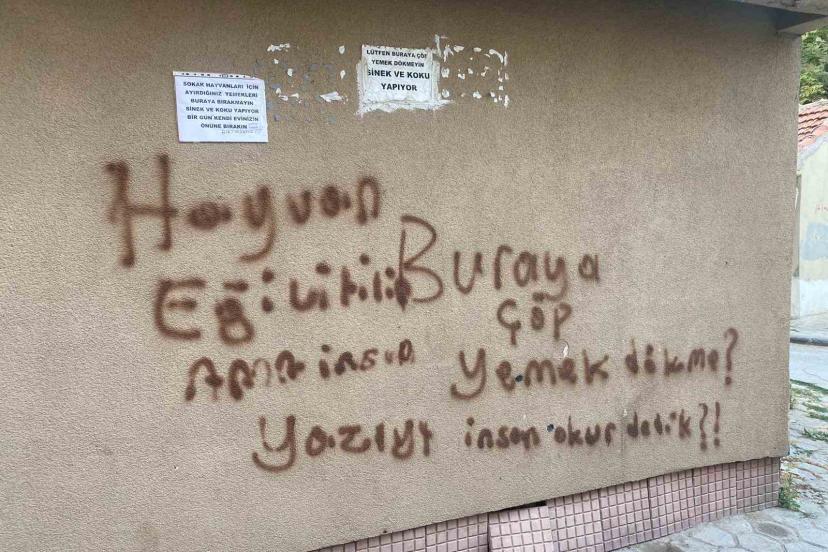 SOKAK HAYVANLARI İÇİN
AYIRDIĞINIZ YEMEKLERİ
BURAYA BIRAKMAYIN
SİNEK VE KOKU YAPIYOR
BİR GÜN KENDİ EVİNİZİN
ÖNÜNE BIRAKIN
LÜTFEN BURAYA ÇÖP
YEMEK DÖKMEYİN
SİNEK VE KOKU
YAPIYOR
Hayvan
Eğitilir
AMA insan
Buraya
ÇÖP
Yemek dökme?
Yazıyı insan okur dedik?!